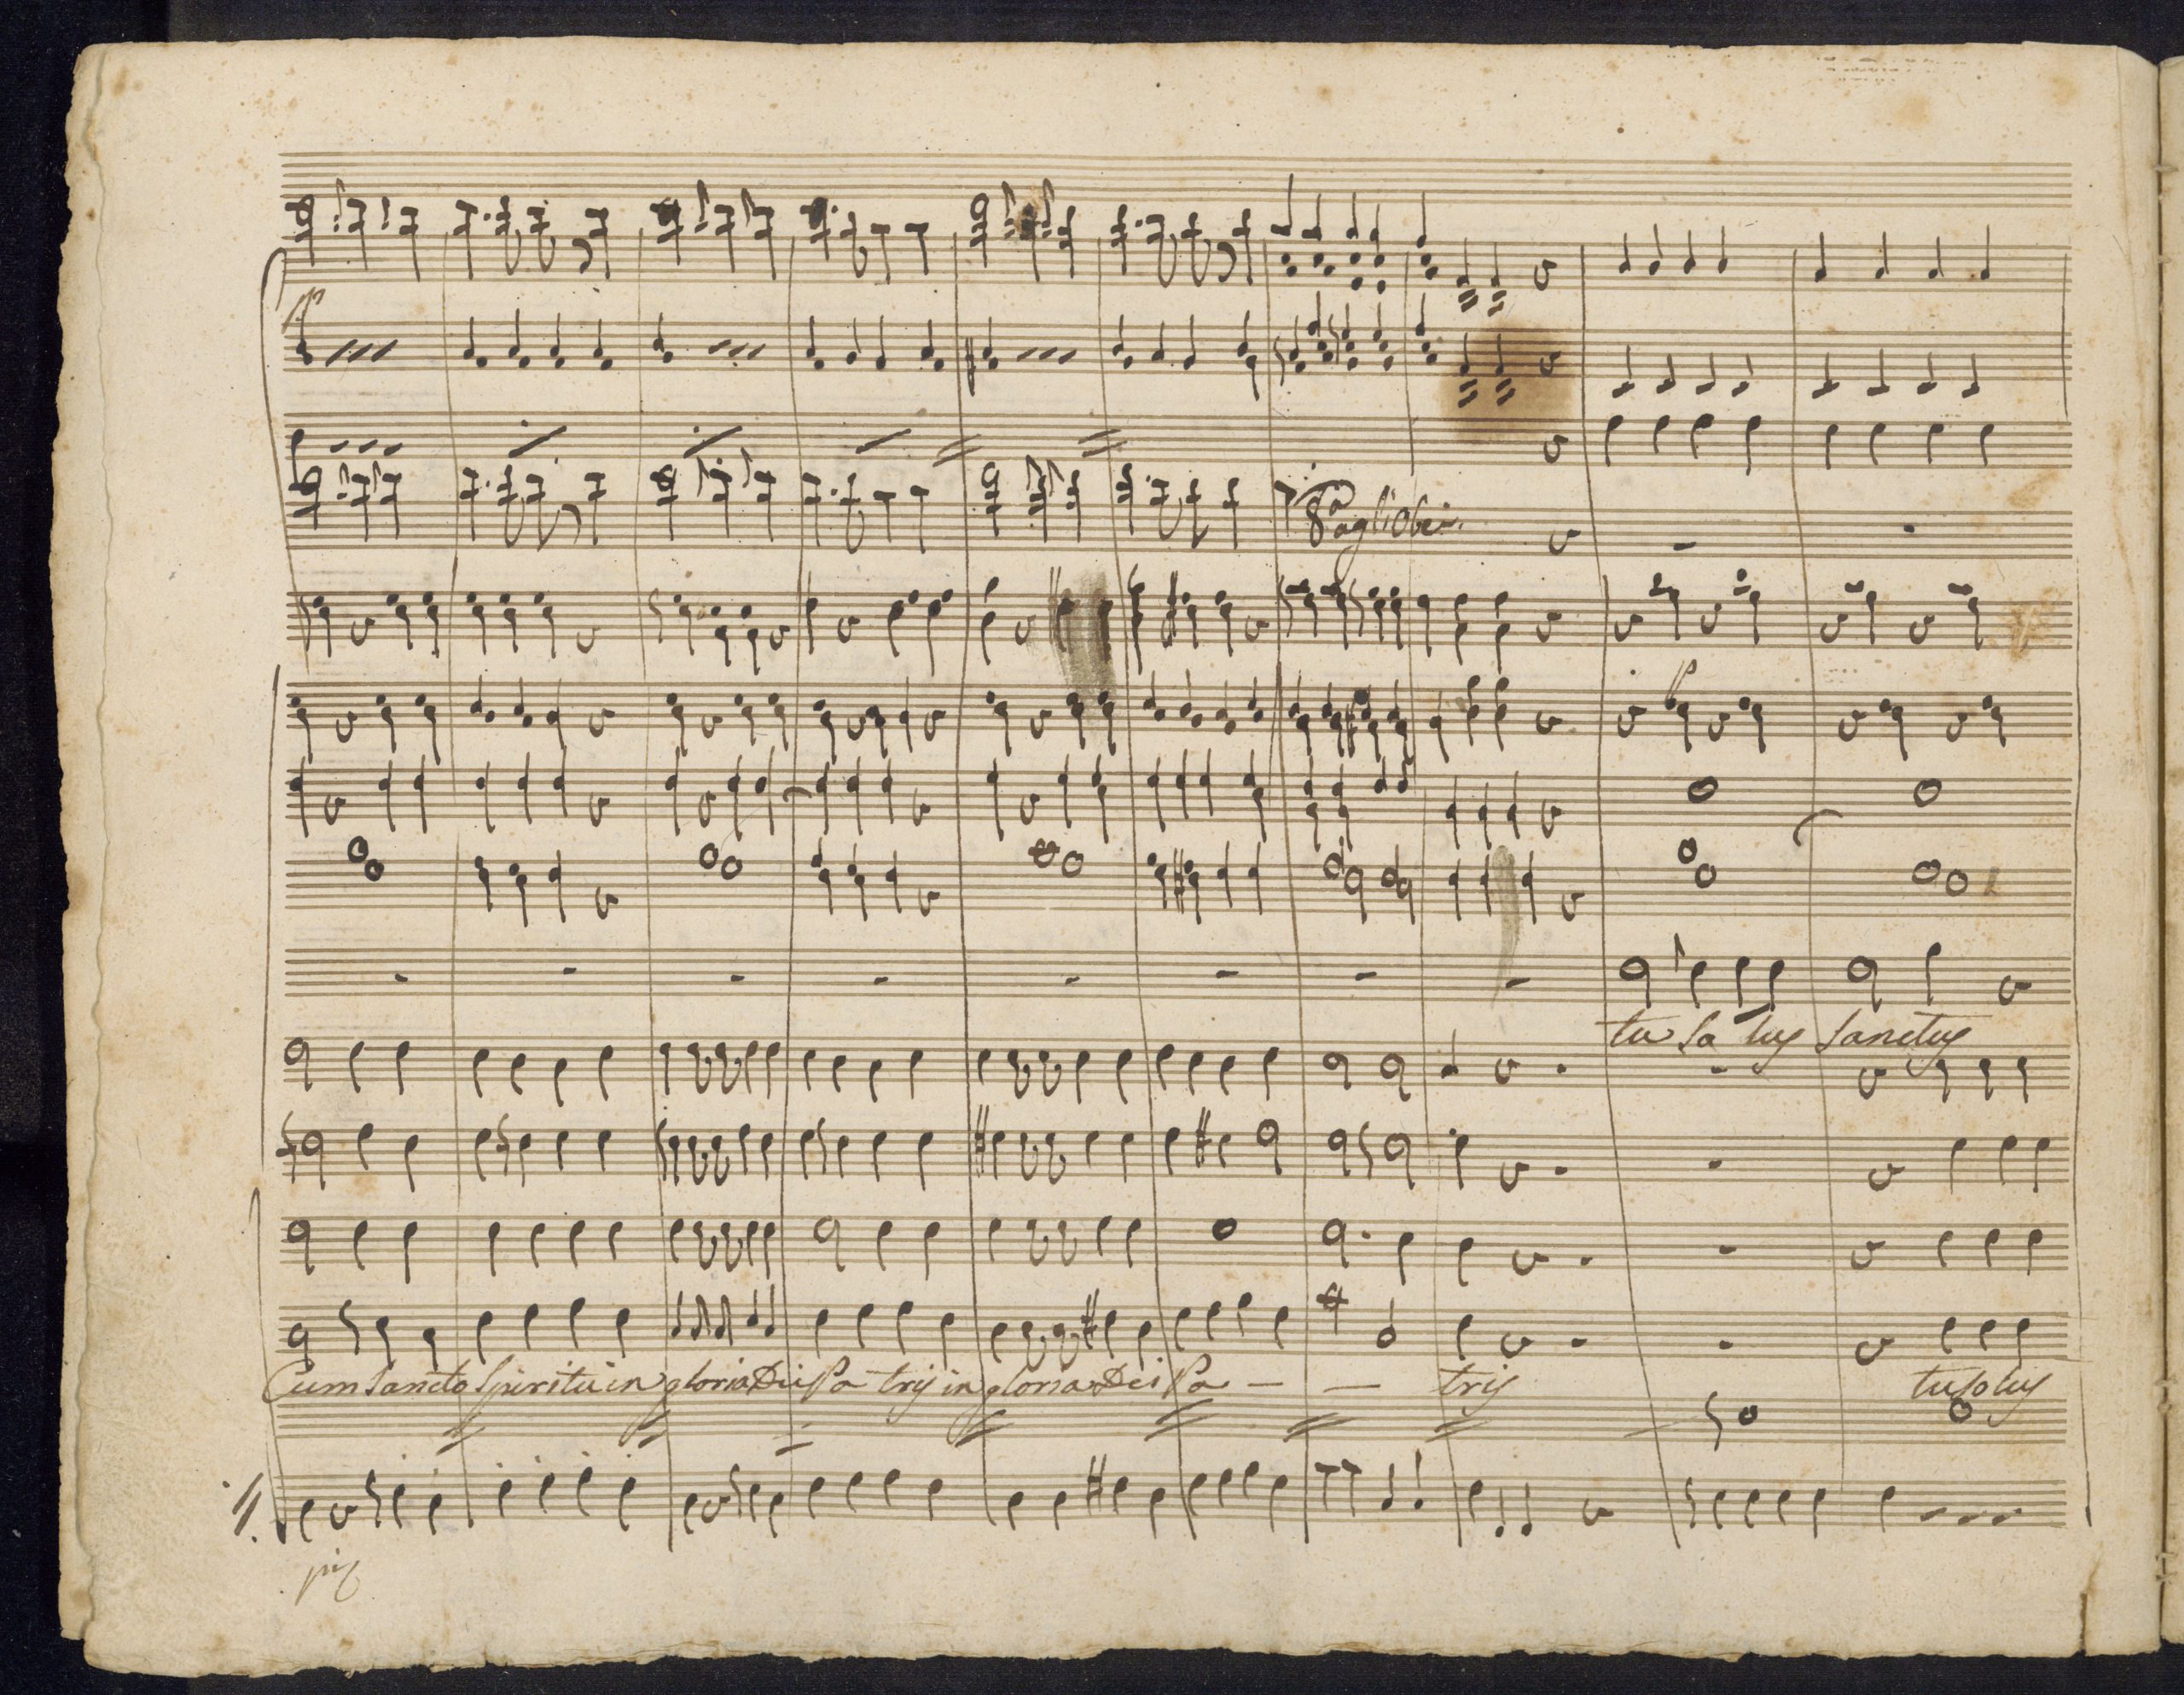 8va gli Oboi.
tu so lus Sanctus
Cum Sancto Spiritu in gloria Dei Pa tris in gloria Dei Pa — — tris tu solus